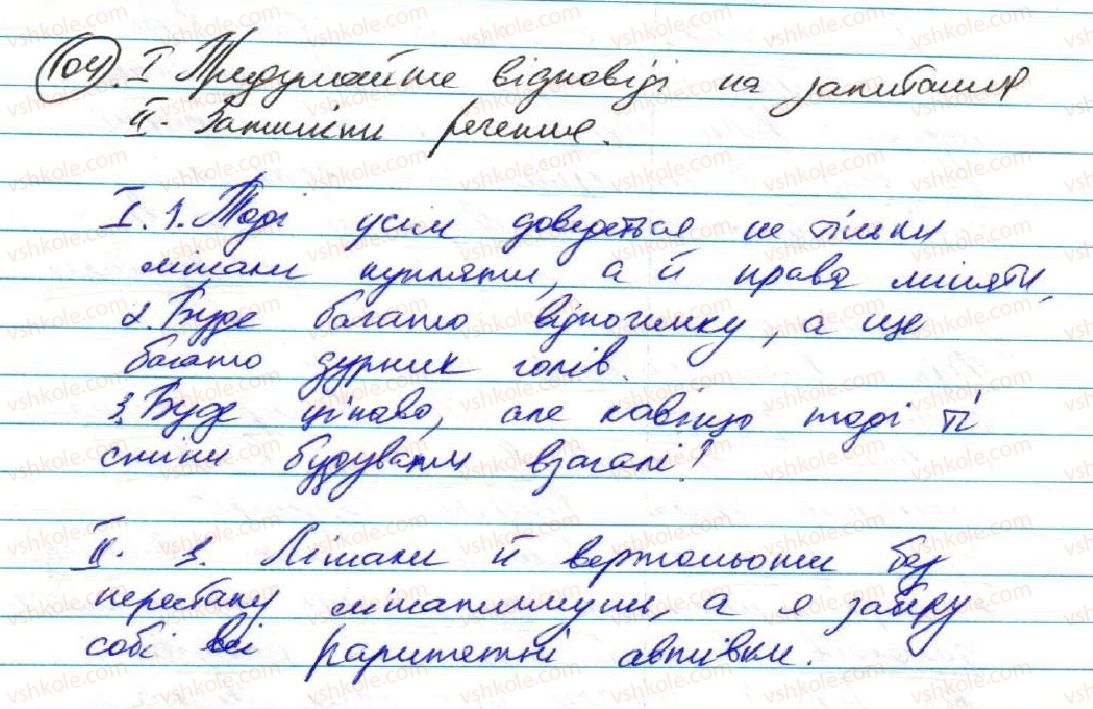 104. І Придумайте відповіді на запитання
ІІ. Запишіть речення.
І. 1. Тоді усім доведеться не тільки
літали купляти, а й права міняти.
2. Буде багато відпочинку, а ще
багато дурних голів.
3. Буде цікаво, але навіщо тоді ті
стіни будувати взагалі?
ІІ. 3. Літаки й вертольоти без
перестану літатимуть, а я заберу
собі всі раритетні автівки.